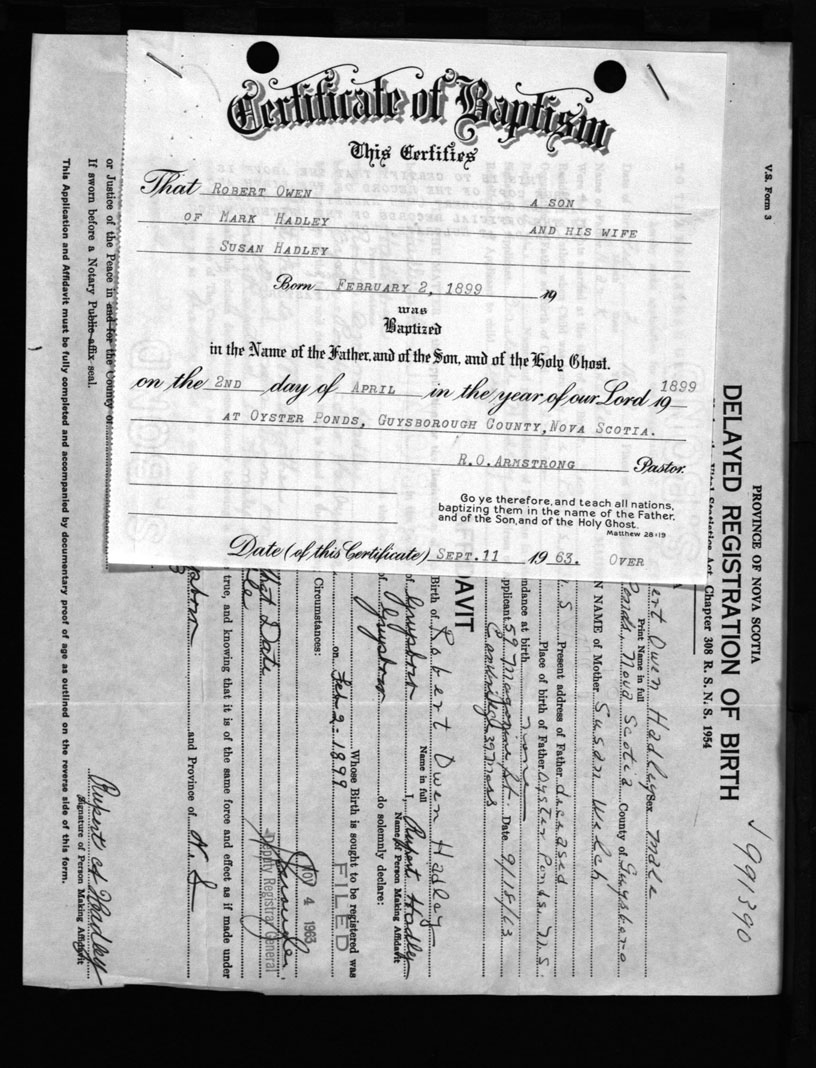 Certificate of Baptism
This Certifies
That ROBERT OWEN A SON
OF MARK HADLEY AND HIS WIFE
SUSAN HADLEY
Born FEBRUARY 2, 1899 19
was
Baptized
in the Name of the Father, and of the Son, and of the Holy Ghost.
on the 2ND day of APRIL in the year of our Lord 19 1899
AT OYSTER PONDS, GUYSBOROUGH COUNTY, NOVA SCOTIA.
R.O. ARMSTRONG Pastor.
Go ye therefore, and teach all nations,
baptizing them in the name of the Father,
and of the Son, and of the Holy Ghost.
Matthew 28:19
Date (of this Certificate) SEPT. 11 1963. OVER
V.S. Form 3
PROVINCE OF NOVA SCOTIA
DELAYED REGISTRATION OF BIRTH
√ 991390
Vital Statistics Act, Chapter 308 R. S. N. S. 1954
ert Owen Hadley Sex male
Print Name in full
Ponds, Nova Scotia County of Guysboro
N NAME of Mother Susan Welch
S Present address of Father deceased
Place of birth of Father Oyster Ponds, N.S.
ndance at birth none
pplicant 59 St. Date 9/18/63
39, Mass
DAVIT
Birth of Robert Owen Hadley
Name in full
of Guysboro I, Rupert Hadley
Name of Person Making Affidavit
of Guysboro do solemnly declare:
Whose Birth is sought to be registered was
on Feb 2 - 1899
FILED
Circumstances:
NOV 4 1963
Deputy Registrar General
that Date
true, and knowing that it is of the same force and effect as if made under
and Province of N. S.
or Justice of the Peace in and for the County of
If sworn before a Notary Public affix seal.
Rupert A Hadley
Signature of Person Making Affidavit
This Application and Affidavit must be fully completed and accompanied by documentary proof of age as outlined on the reverse side of this form.